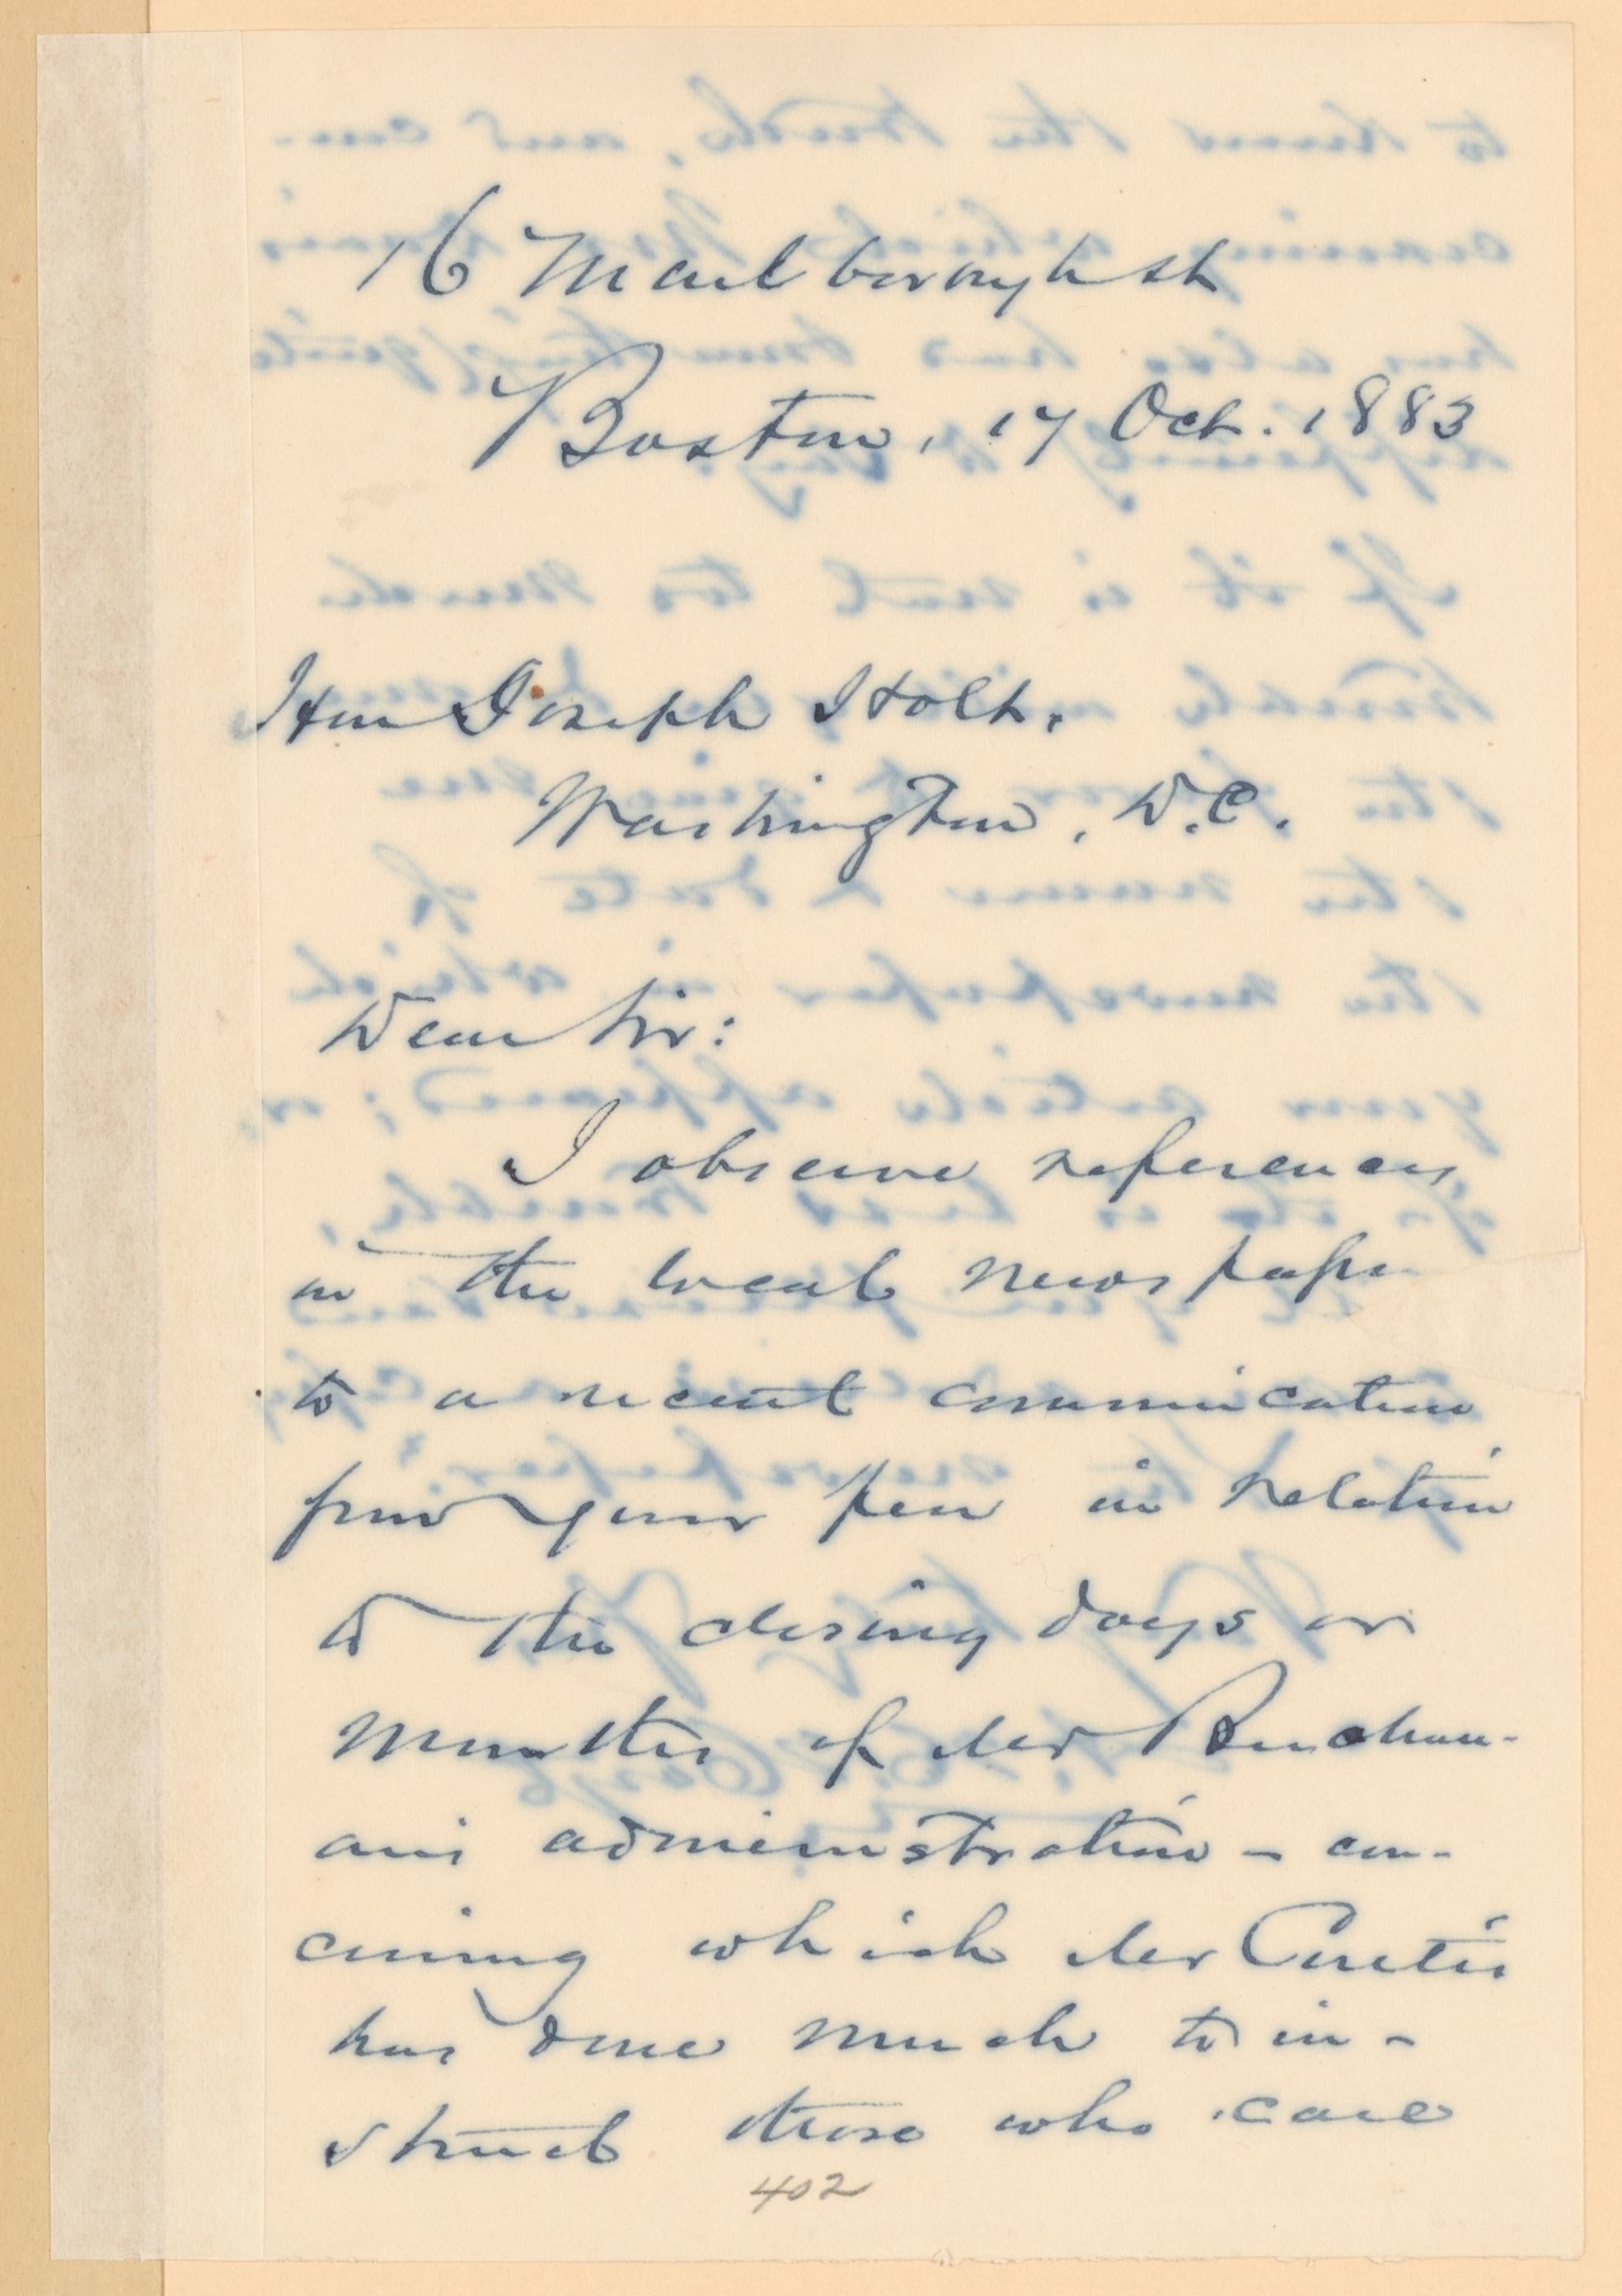 16 Marlborough st
Boston, 17 Oct. 1883
Hon Joseph Holt.
Washington, D.C.
Dear Sir:
I observe references
in the local newspaper
to a recent communication
from your pen in relation
to the closing days or
months of Mr Buchan-
an's administration - con-
cerning which Mr Curtis
has done much to in-
struct those who care
402